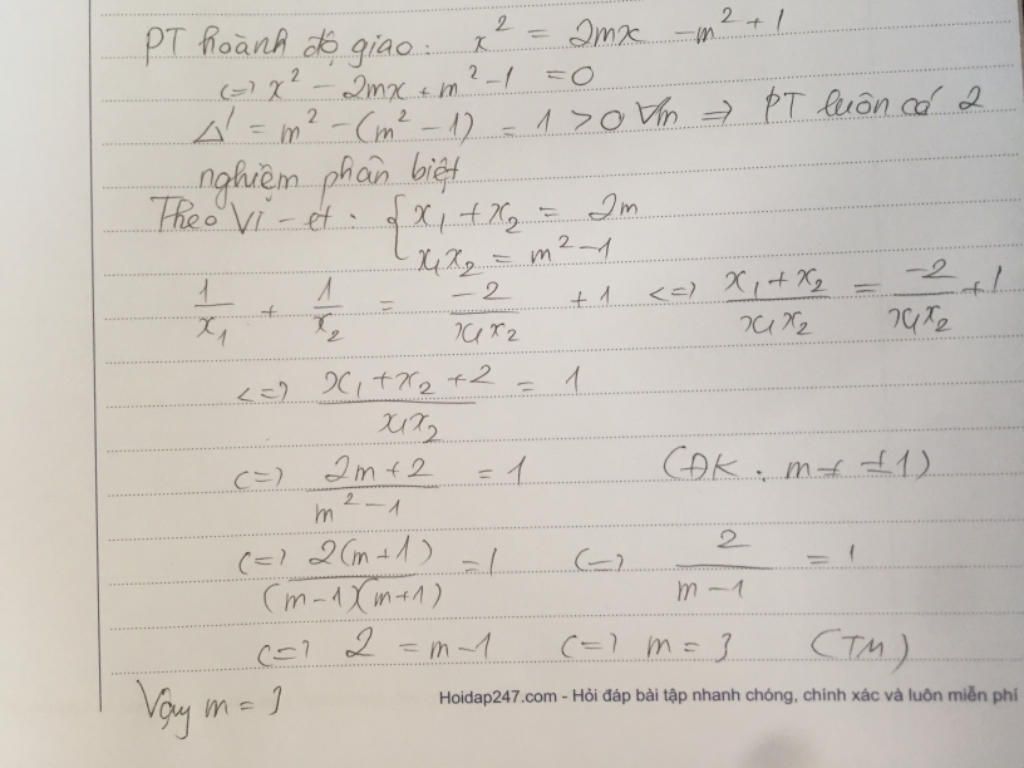 PT hoành độ giao: x² = 2mx - m² + 1
<=> x² - 2mx + m² - 1 = 0
Δ' = m² - (m² - 1) = 1 > 0 ∀m => PT luôn có 2
nghiệm phân biệt
Theo Vi-et: { x₁ + x₂ = 2m
x₁x₂ = m² - 1
1/x₁ + 1/x₂ = -2/(x₁x₂) + 1 <=> (x₁ + x₂)/(x₁x₂) = -2/(x₁x₂) + 1
<=> (x₁ + x₂ + 2)/(x₁x₂) = 1
<=> (2m + 2)/(m² - 1) = 1 (ĐK: m ≠ ±1)
<=> 2(m + 1)/((m - 1)(m + 1)) = 1 <=> 2/(m - 1) = 1
<=> 2 = m - 1 <=> m = 3 (TM)
Vậy m = 3
Hoidap247.com - Hỏi đáp bài tập nhanh chóng, chính xác và luôn miễn phí